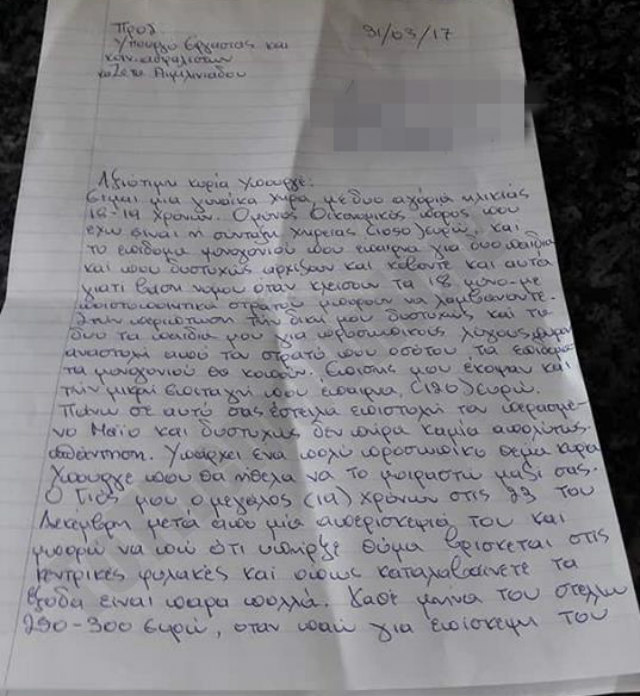 Προς
31/03/17
Υπουργό Εργασίας και
κοιν. ασφαλίσεων
κα Ζέτα Αιμιλιανίδου
Αξιότιμη κυρία Υπουργέ:
Είμαι μια γυναίκα χήρα, με δυο αγόρια ηλικίας
18-19 χρονών. Ο μόνος Οικονομικός πόρος που
έχω είναι η σύνταξη χηρείας (1050) ευρώ, και
το επίδομα μονογονιού που επαιρνα για δυο παιδιά
και που δυστυχώς αρχίσαν και κόβοντε και αυτά
γιατί βάση νόμου όταν κλείσουν τα 18 μόνο με
πιστοποιητικό στρατού μπορούν να λαμβάνοντε.
Στην περίπτωση την δική μου δυστυχώς και τα
δυο τα παιδιά μου για προσωπικούς λόγους, πήραν
αναστολή από τον στρατό που οσότου τα επιδόματα
τα μονογονιού θα κοπούν. Επίσης μου έκοψαν και
την μικρή επιταγή που επαιρνα, (120) ευρώ.
Πάνω σε αυτό σας έστειλα επιστολή τον περασμέ-
νο Μαϊο και δυστυχώς δεν πήρα καμία απολύτως.
απάντηση. Υπάρχει ένα πολύ προσωπικό θέμα κυρία
Υπουργέ που θα ήθελα να το μοιραστώ μαζί σας.
Ο Γιός μου ο μεγάλος (19) χρόνων στις 23 του
Δεκέμβρη μετά από μία απερισκεψία του και
μπορώ να πω ότι υπήρξε θύμα βρίσκεται στις
κεντρικές φυλακές και όπως καταλαβαίνετε τα
έξοδα είναι πάρα πολλά. Κάθε μήνα του στέλνω
290-300 ευρώ, όταν πάω για επίσκεψη του